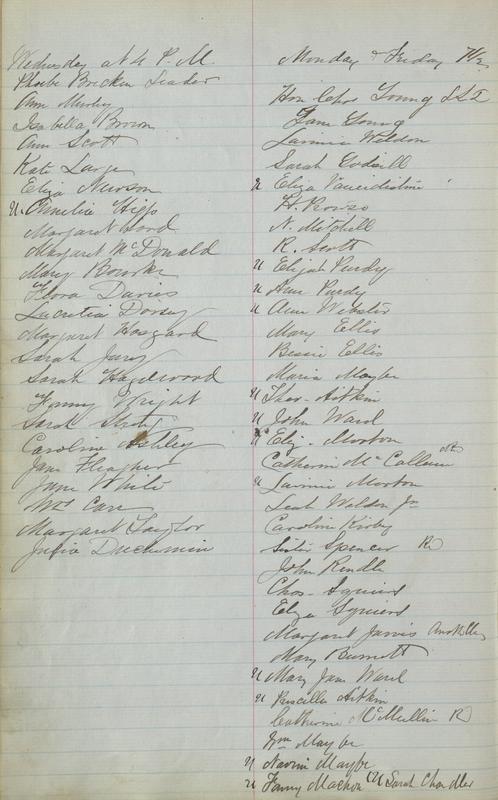 Wednesday at 4 P.M.
Phoebe Bricken Leader
Ann Murley
Isabella Brown
Ann Scott
Kate Large
Eliza Newson
u. Amelia Higgs
Margaret Hood
Margaret McDonald
Mary Rourke
Flora Davies
Lucretia Dorsey
Margaret Hoszard
Sarah Jury
Sarah Hazelwood
Fanny Wright
Sarah
Caroline Ashley
Jane Fleagher
Jane White
Mrs Carr
Margaret Taylor
Julia Duchemin
Monday & Friday 7 1/2
Hon Chas Young LLD
Jane Young
Lavinia Weldon
Sarah
u Eliza
H.
N. Mitchell
R. Scott
u Elijah Purdy
u Ann Purdy
u Ann Webster
Mary Ellis
Bessie Ellis
Maria Maybe
u Thos. Aitkin
u John Ward
u Eliz. Morton
Catherine McCallum
u Lavinia Morton
Leah Weldon Jr
Caroline Kirby
Sister Spencer R
John Rendle
Chas. Squires
Eliza Squires
Margaret Jarvis
Mary Burnett
u Mary Jane Ward
u Priscilla Aitkin
Catherine McMullin R
Wm Maybe
u Naomi Maybe
u Fanny Machon (u Sarah Chandler